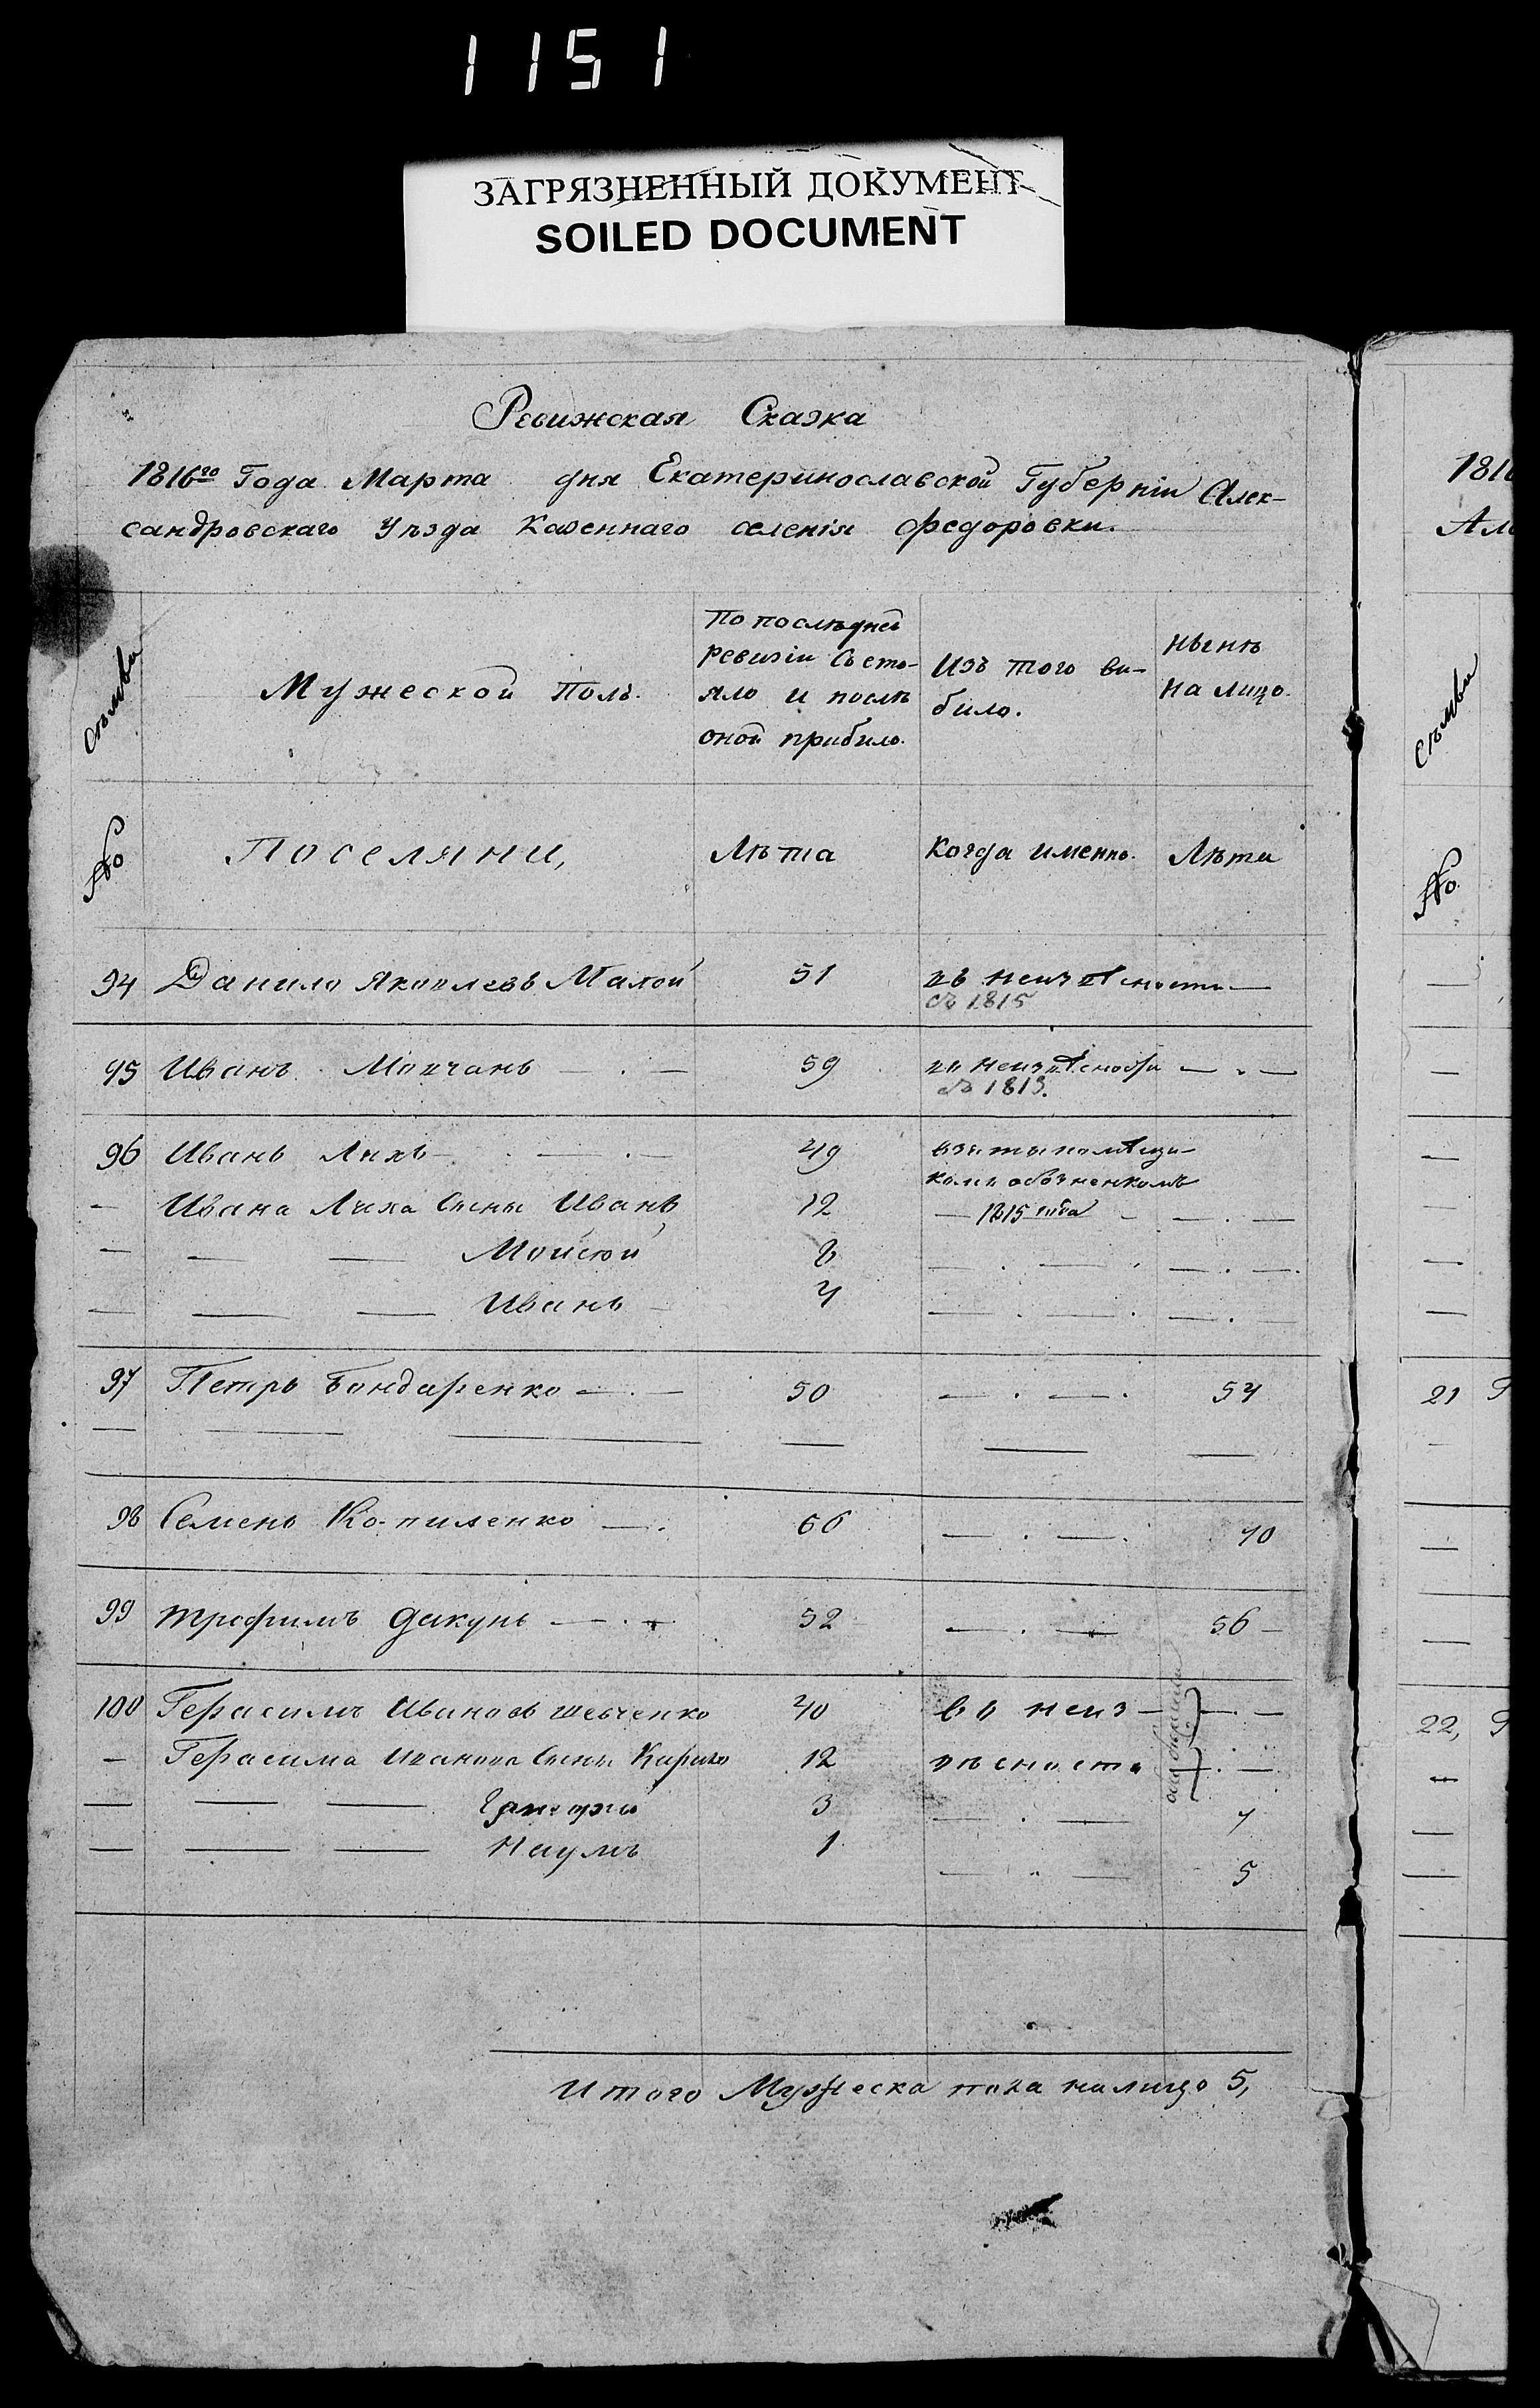 1151
ЗАГРЯЗНЕННЫЙ ДОКУМЕНТ
SOILED DOCUMENT
Ревижская Сказка
1816го Года Марта дня Екатеринославской Губерніи Алек-
сандровскаго Уѣзда Казеннаго селенія Федоровки.
Мужеской Полъ.
По послѣдней
ревизіи Състо-
яло и послѣ
оной прибило.
Изъ того ви-
било.
Нынѣ
на лицо.
№
Поселяни,
Лѣта
Когда именно.
Лѣта
94 Данило Яковлевъ Малой 51 въ неизвѣсности —
съ 1815
95 Иванъ Мовчанъ — . — 59 въ неизвѣсности — . —
съ 1813.
96 Иванъ Лихъ — . — 49 взяты помѣщи-
комъ
— Ивана Лиха Сыны Иванъ 12 — 1815 года — . —
— — — Мойсей 8 — . — . — . —
— — — Иванъ 4 — . — . — . —
97 Петръ Бондаренко — . — 50 — . — . 54
— — — — — —
98 Семенъ Копиленко — . 66 — . — . 70
99 Трофимъ Дикунъ — . — 52 — . — 56 —
100 Герасимъ Ивановъ Шевченко 40 въ неиз — — . —
— Герасима Иванова Сыны Кирило 12 вѣсности — . —
— — — Григорій 3 — . — 7
— — — Наумъ 1 — . — 5
Итого Мужеска пола налицо 5,
1816
Але
Съмьи
№
21
22,